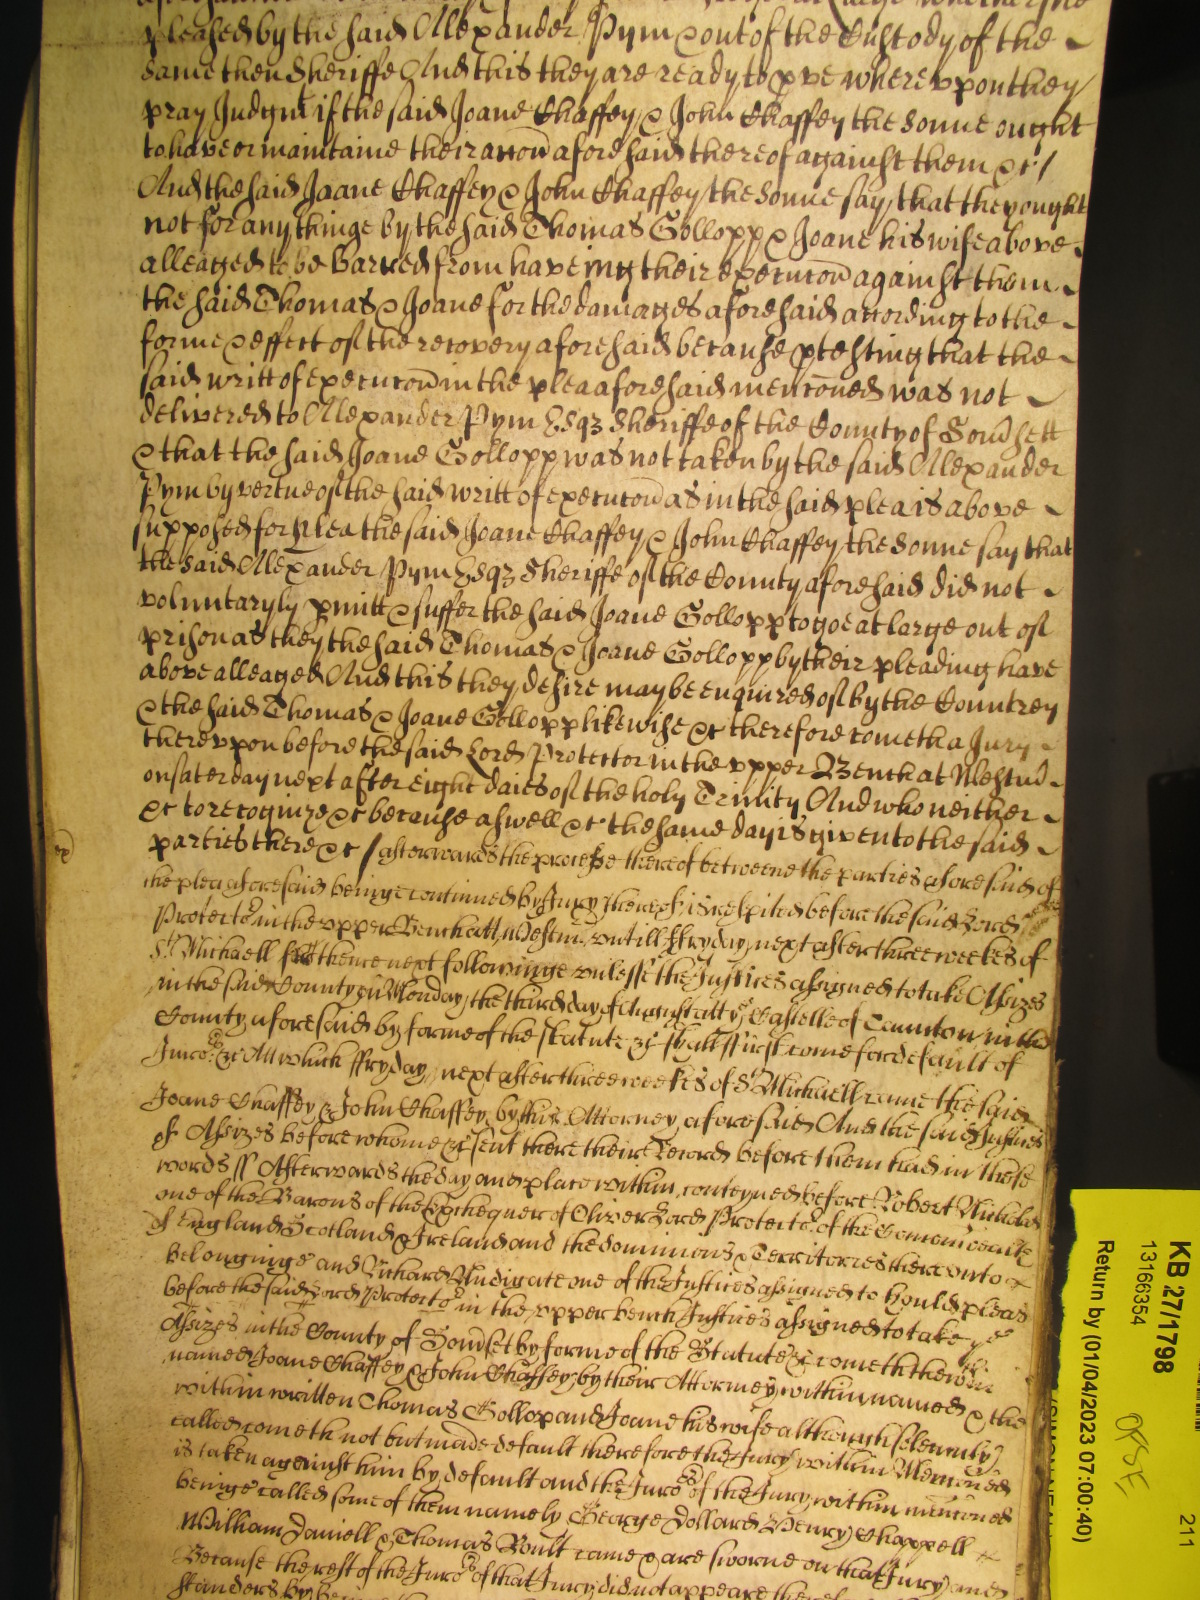 pleased by the said Allexander Pym & out of the Custody of the
same then Sheriffe And this they are ready to pve whereuppon they
pray Judgmt if the said Joane Chaffey & John Chaffey the sonne ought
to have or maintaine their accon aforesaid thereof against them &c /
And the said Joane Chaffey & John Chaffey the sonne say that they ought
not for any thinge by the said Thomas Gollopp & Joane his wife above
alleaged to be Barred from haveing their execucon against them
the said Thomas & Joane for the damages aforesaid according to the
forme & effect of the recovery aforesaid because ptesting that the
said writt of execucon in the plea aforesaid menconed was not
delivered to Allexander Pym Esqz Sheriffe of the County of Somsett
& that the said Joane Gollopp was not taken by the said Allexander
Pym by vertue of the said writt of execucon as in the said plea is above
supposed for plea the said Joane Chaffey & John Chaffey the sonne say that
the said Allexander Pym Esqz Sheriffe of the County aforesaid did not
voluntaryly pmitt & suffer the said Joane Gollopp to goe at large out of
prison as they the said Thomas & Joane Gollopp by their pleading have
above alleaged And this they desire may be enquired of by the Countrey
& the said Thomas & Joane Gollopp likewise &c therefore cometh a Jury
thereuppon before the said Lord Protector in the upper Bench at Westmd
on saterday next after eight daies of the holy Trinity And who neither
&c to recognize &c because aswell &c the same day is given to the said
parties there &c / afterwards the processe thereof betweene the parties aforesaid of
the plea aforesaid beinge continued by Jury thereof is respited before the said Lord
Protector in the upper Bench att Westmr untill ffryday next after three weekes of
St Michaell thence next followinge unlesse the Justices assigned to take Assizes
in the said County on Monday the third day of August att ye Castelle of Taunton in the
County aforesaid by forme of the statute &c shall first come for default of
Juro:rs &c Att which ffryday next after three weekes of St Michaell came the said
Joane Chaffey & John Chaffey by their Attorney aforesaid And the said Justices
of Assizes before whome &c sent there their Record before them had in these
words ss Afterwards the day and place within conteyned before Robert Nicholas
one of the Barons of the Exchequer of Oliver Lord Protector of the Comonwealth
of England Scotland & Ireland and the dominions & Territories thereunto
belonginge and Richard Nudigate one of the Justices assigned to hould pleas
before the said Lord Protector in the upper bench Justices assigned to take ye
Assizes in the County of Somset by forme of the Statute &c cometh the within
named Joane Chaffey & John Chaffey by their Attorney within named & the
within written Thomas Gollop and Joane his wife although solemnly
called come th not but made default therefore the Jury within Menconed
is taken against him by default and the Juro:rs of the Jury within menconed
beinge called some of them namely George Dollard Henry Chappell
William Daniell & Thomas Boult came & are sworne on that Jury and
Because the rest of the Juro:rs of that Jury did not appeare
standers by
KB 27/1798
13166354
Return by (01/04/2023 07:00:40)
211